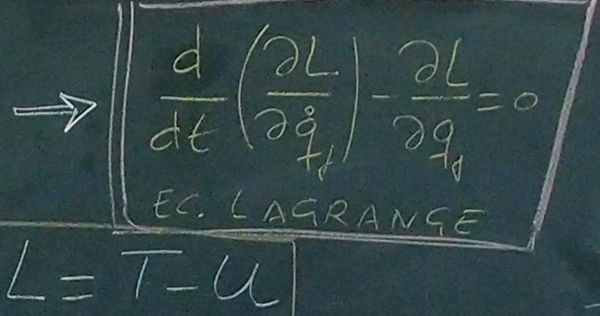 d/dt (∂L/∂q̇ⱼ) - ∂L/∂qⱼ = 0
EC. LAGRANGE
L = T - U